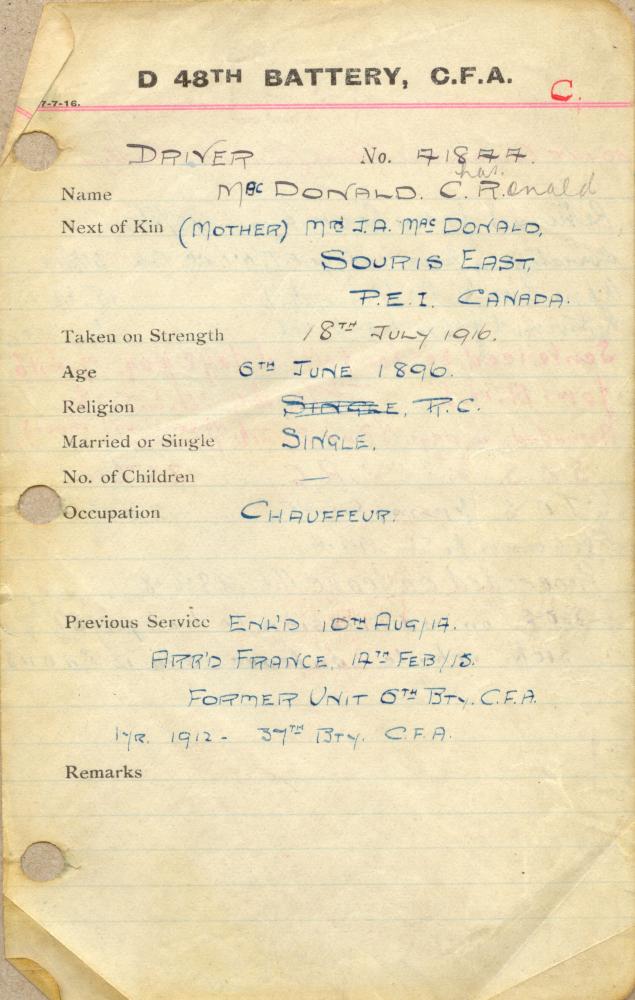 D 48TH BATTERY, C.F.A.
C.
7-7-16.
DRIVER No. 71877.
has.
Name MAC DONALD. C. Ronald
Next of Kin (MOTHER) MRS J.A. MAC DONALD,
SOURIS EAST,
P.E.I. CANADA.
Taken on Strength 18TH JULY 1916.
Age 6TH JUNE 1896.
Religion SINGLE, R.C.
Married or Single SINGLE.
No. of Children —
Occupation CHAUFFEUR.
Previous Service ENL'D 10TH AUG/14.
ARR'D FRANCE, 14TH FEB/15.
FORMER UNIT 6TH BTY. C.F.A.
1 YR. 1912 - 37TH BTY. C.F.A.
Remarks